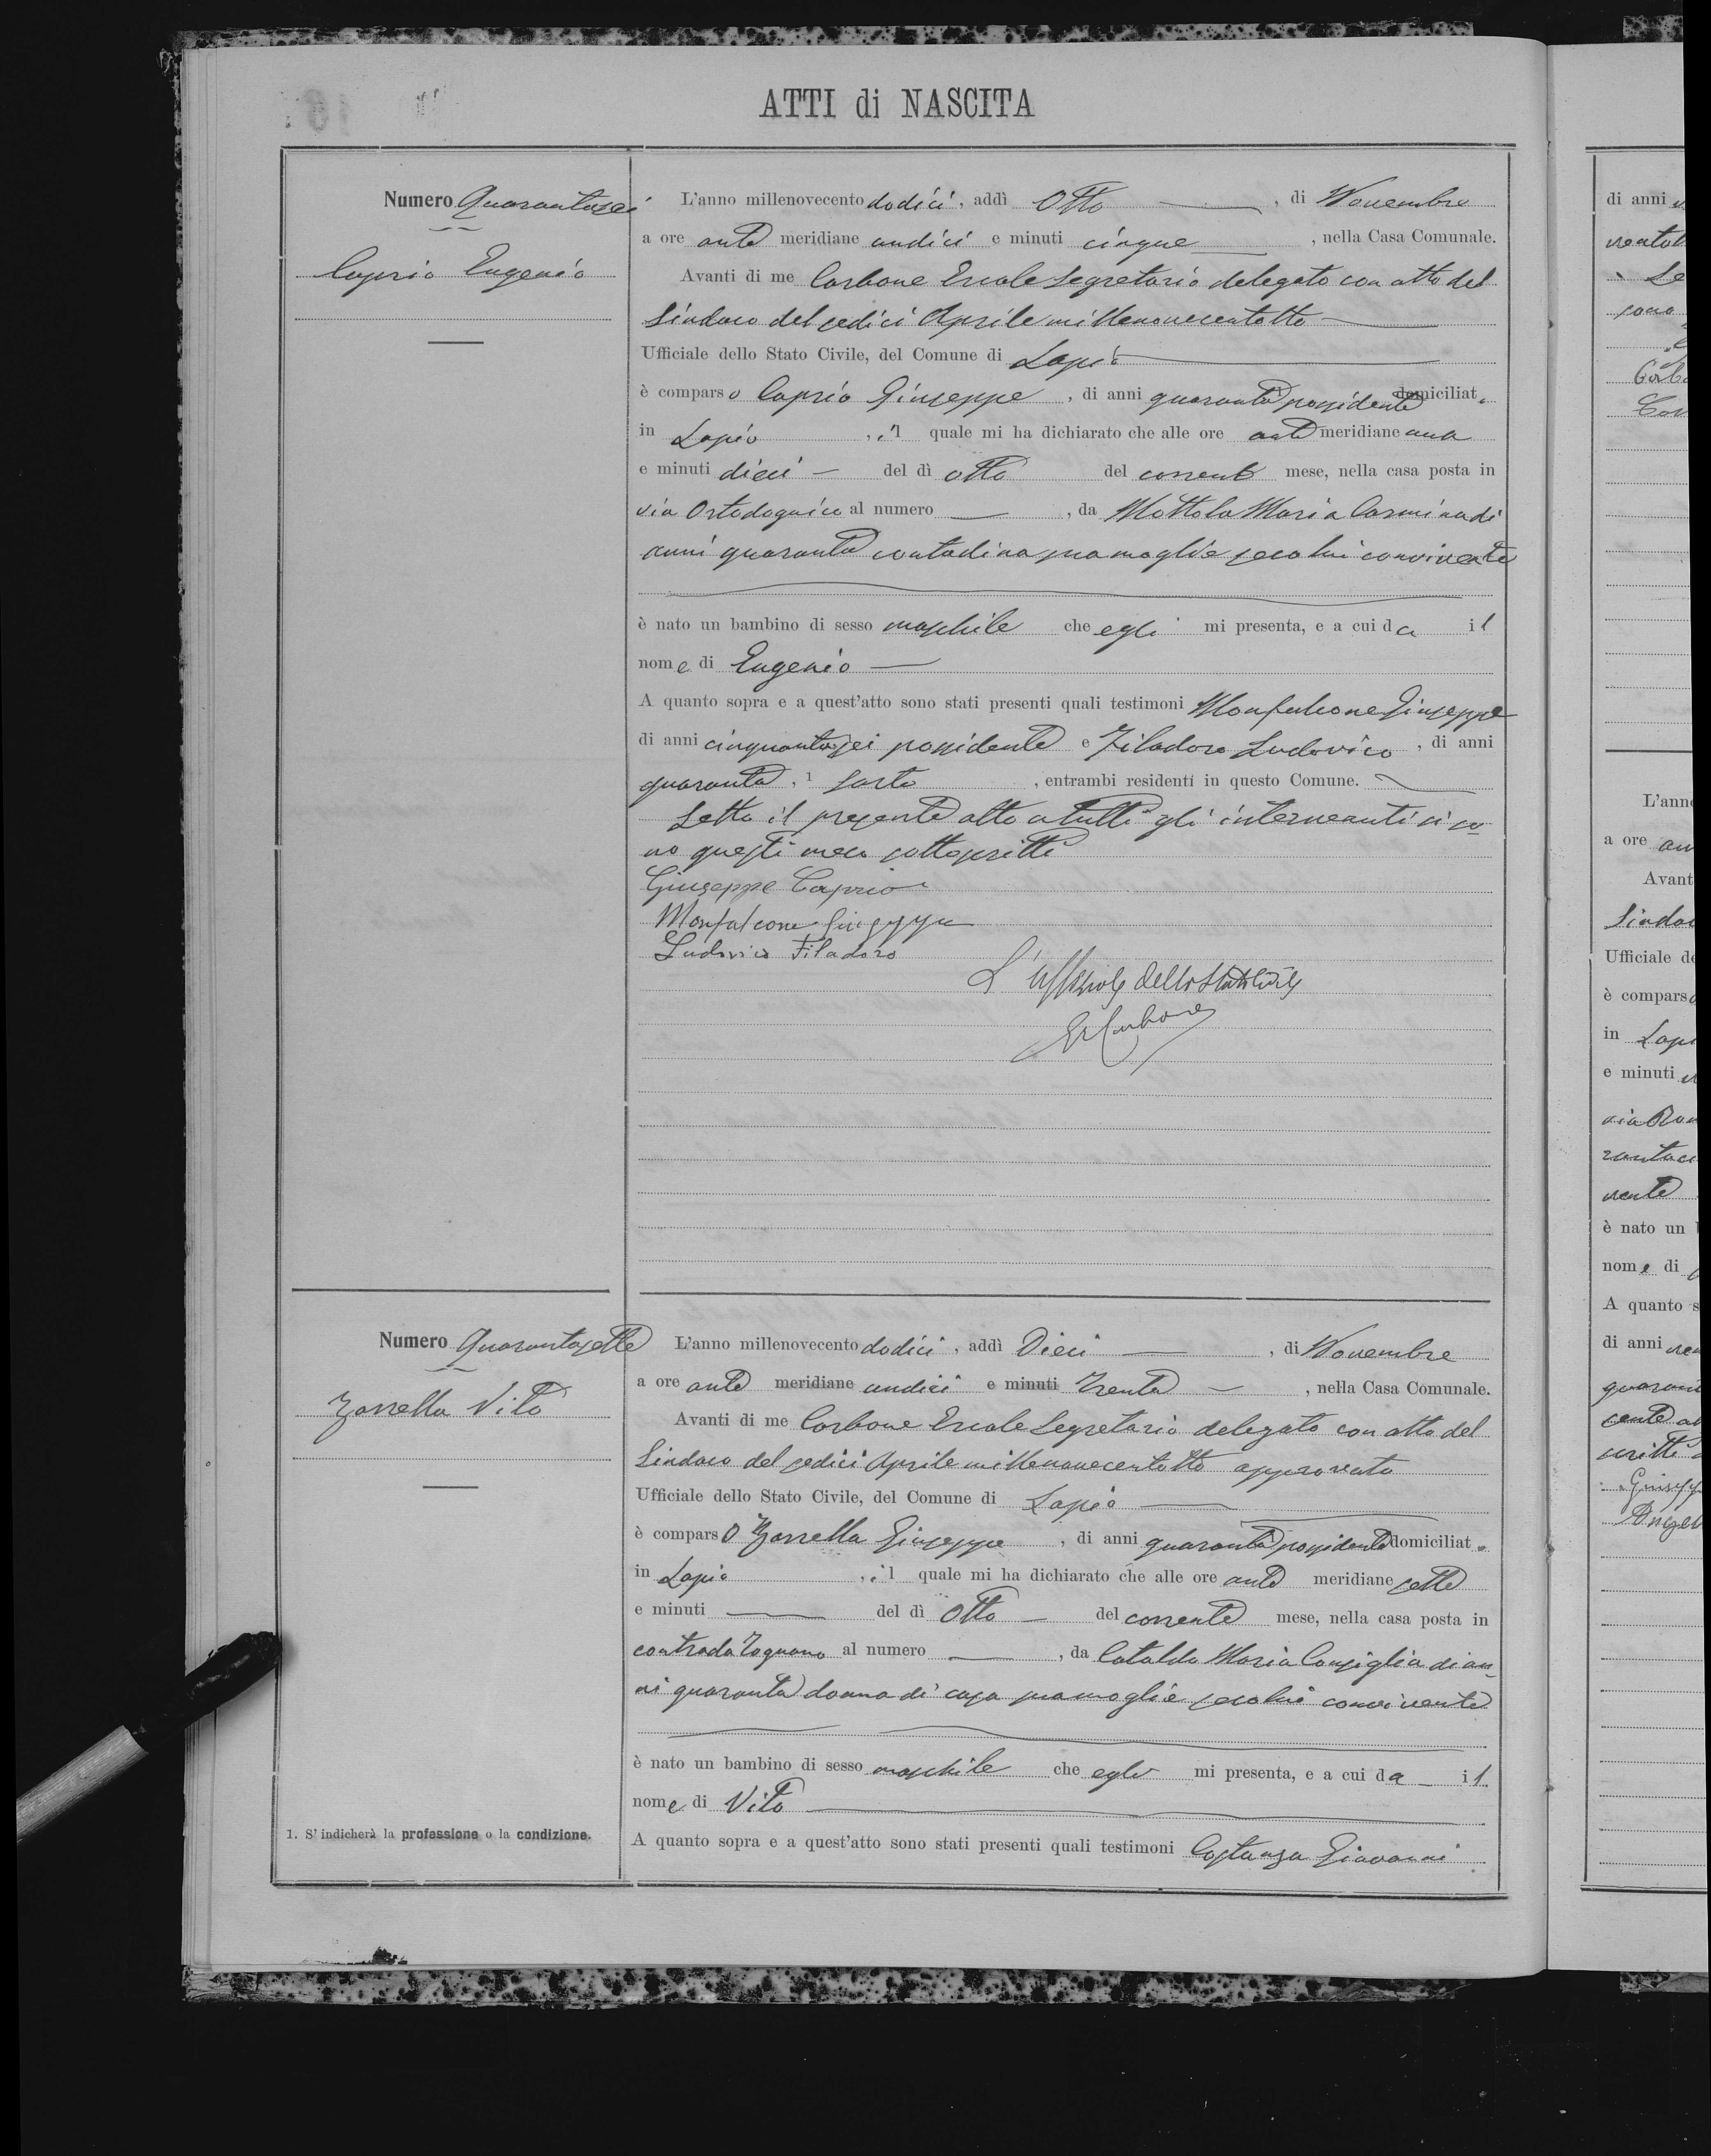 ATTI di NASCITA
Numero Quarantasei
Caprio Eugenio
L'anno millenovecento dodici, addì Otto, di Novembre
a ore ante meridiane undici e minuti cinque, nella Casa Comunale.
Avanti di me Carbone Ercole Segretario delegato con atto del
Sindaco del sedici Aprile millenovecentotto
Ufficiale dello Stato Civile, del Comune di Lapio
è comparso Caprio Giuseppe, di anni quaranta possidente domiciliato
in Lapio, il quale mi ha dichiarato che alle ore ante meridiane una
e minuti dieci del dì otto del corrente mese, nella casa posta in
via al numero, da Mottola Maria Carmina di
anni quaranta contadina sua moglie seco lui convivente
è nato un bambino di sesso maschile che egli mi presenta, e a cui da il
nome di Eugenio
A quanto sopra e a quest'atto sono stati presenti quali testimoni Monfalcone Giuseppe
di anni cinquantasei possidente e Filadoro Ludovico, di anni
quaranta, 1 sarto, entrambi residenti in questo Comune.
Letto il presente atto a tutti gli intervenuti si so
no questi meco sottoscritti
Giuseppe Caprio
Monfalcone Giuseppe
Ludovico Filadoro
L'uffiziale dello Stato Civile
E. Carbone
Numero Quarantasette
Zarrella Vito
L'anno millenovecento dodici, addì Dieci, di Novembre
a ore ante meridiane undici e minuti Trenta, nella Casa Comunale.
Avanti di me Carbone Ercole Segretario delegato con atto del
Sindaco del sedici Aprile millenovecentotto approvato
Ufficiale dello Stato Civile, del Comune di Lapio
è comparso Zarrella Giuseppe, di anni quaranta possidente domiciliato
in Lapio, il quale mi ha dichiarato che alle ore ante meridiane sette
e minuti del dì Otto del corrente mese, nella casa posta in
contrada Tognano al numero, da Cataldo Maria Consiglia di an
ni quaranta donna di casa sua moglie seco lui convivente
è nato un bambino di sesso maschile che egli mi presenta, e a cui da il
nome di Vito
A quanto sopra e a quest'atto sono stati presenti quali testimoni Costanza Giovanni
1. S'indicherà la professione o la condizione.
di anni
Sindac
Ufficiale de
è comparso
in Lapi
e minuti
è nato un
nome di
A quanto s
di anni
L'anno
a ore an
Avant